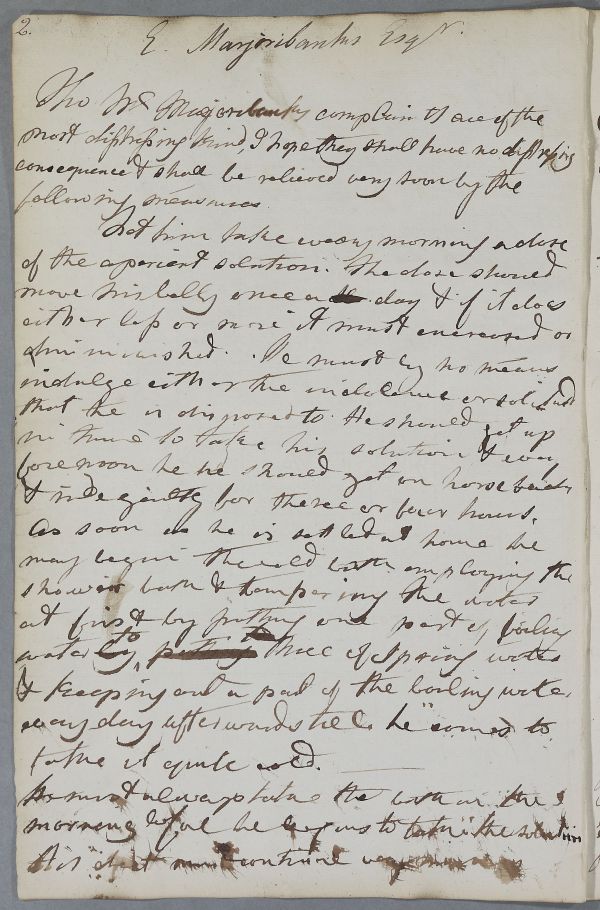 2.
E. Marjoribanks Esqr.
Tho Mr Marjoribanks complaints are of the
most distressing kind, I hope they shall have no distressing
consequence & shall be relieved very soon by the
following measures.
Let him take every morning a dose
of the aperient solution. The dose should
move his belly once a day & if it does
either less or more it must encreased or
diminished. He must by no means
indulge either the indolence or solitude
that he is disposed to. He should get up
in time to take his solution & every
forenoon he he should get on horseback
& ride gently for three or four hours.
As soon as he is settled at home he
may begin the cold bath employing the
shower bath & tempering the water
at first by putting one part of boiling
water to three of Spring water
& keeping out a part of the boiling water
every day afterwards till he comes to
take it quite cold.
He must always take the bath in the
morning before he begins to take the solution
His diet must continue very